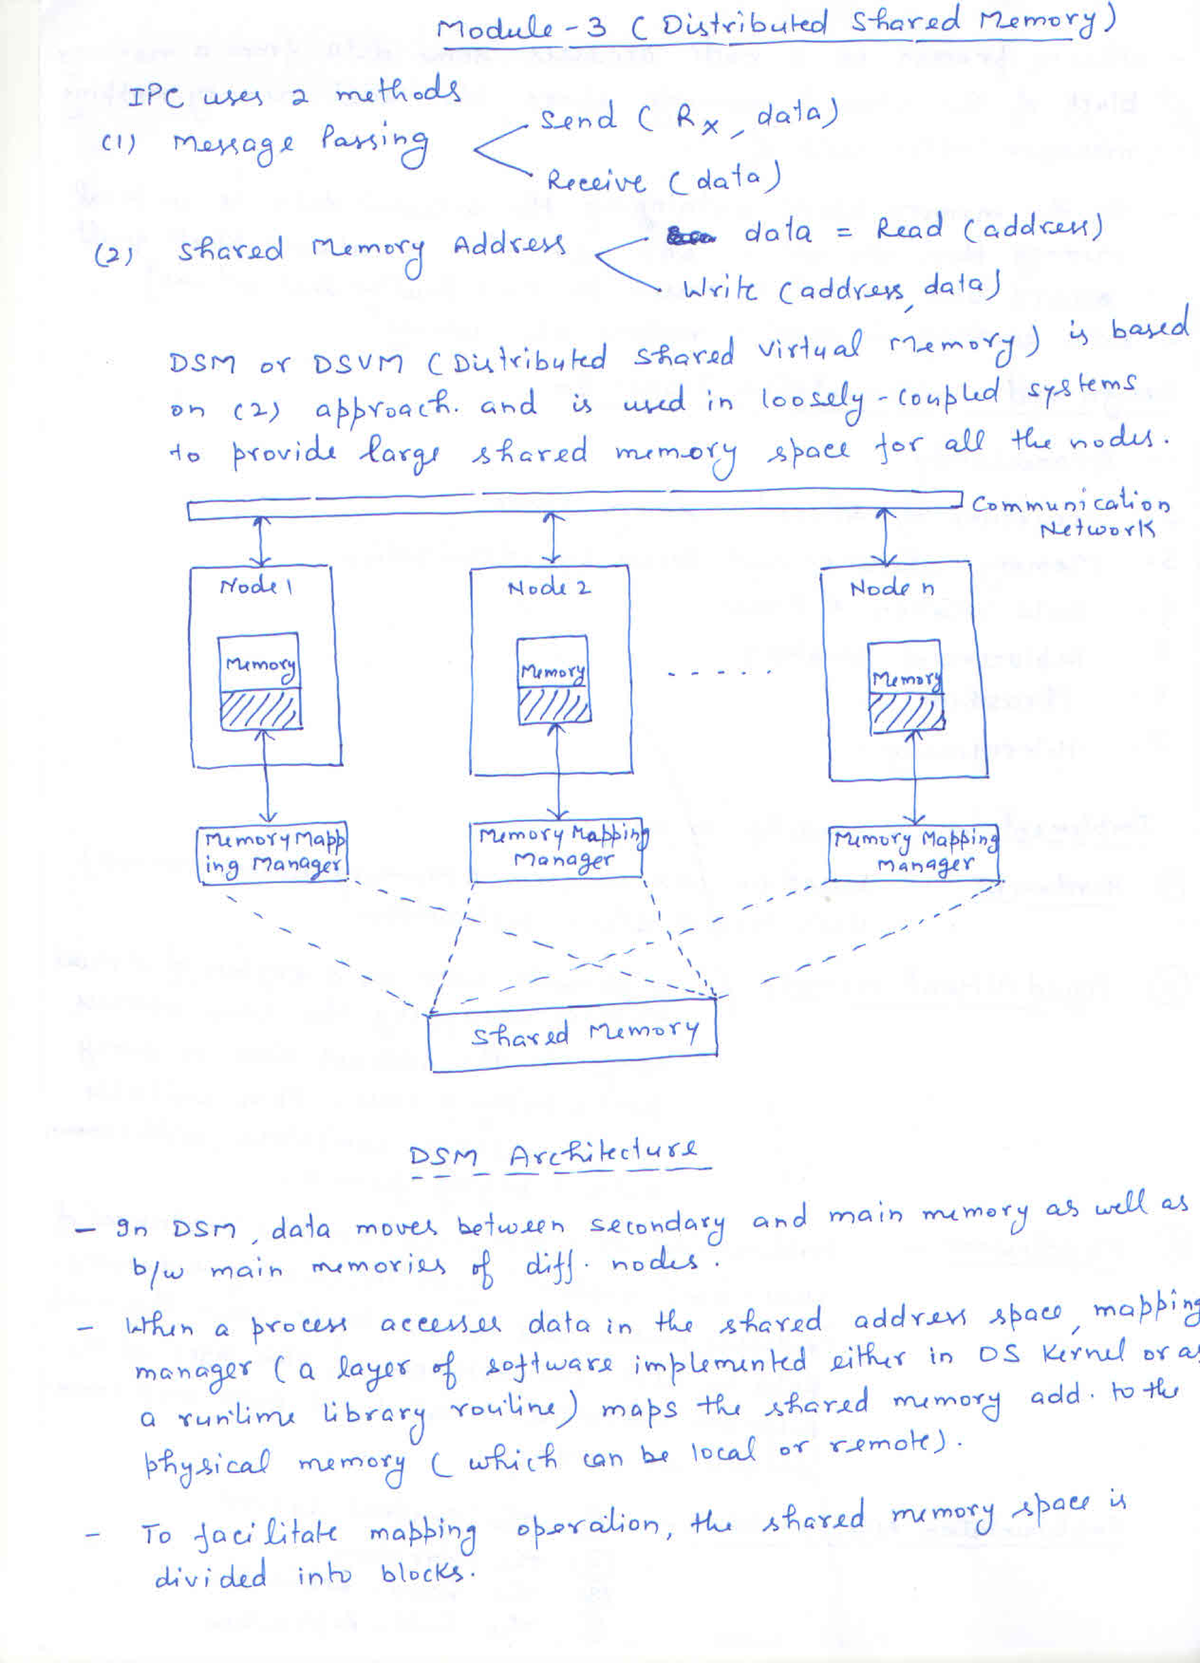 Module - 3 (Distributed Shared Memory)
IPC uses 2 methods
(1) Message Passing
Send (Rx, data)
Receive (data)
(2) Shared Memory Address
data = Read (address)
Write (address, data)
DSM or DSVM (Distributed Shared Virtual Memory) is based
on (2) approach. and is used in loosely-coupled systems
to provide large shared memory space for all the nodes.
Communication
Network
Node 1
Node 2
Node n
Memory
Memory
Memory
. . . . . .
Memory Mapp
ing Manager
Memory Mapping
Manager
Memory Mapping
Manager
Shared Memory
DSM Architecture
- In DSM, data moves between secondary and main memory as well as
b/w main memories of diff. nodes.
- When a process accesses data in the shared address space, mapping
manager (a layer of software implemented either in OS Kernel or as
a runtime library routine) maps the shared memory add. to the
physical memory (which can be local or remote).
- To facilitate mapping operation, the shared memory space is
divided into blocks.